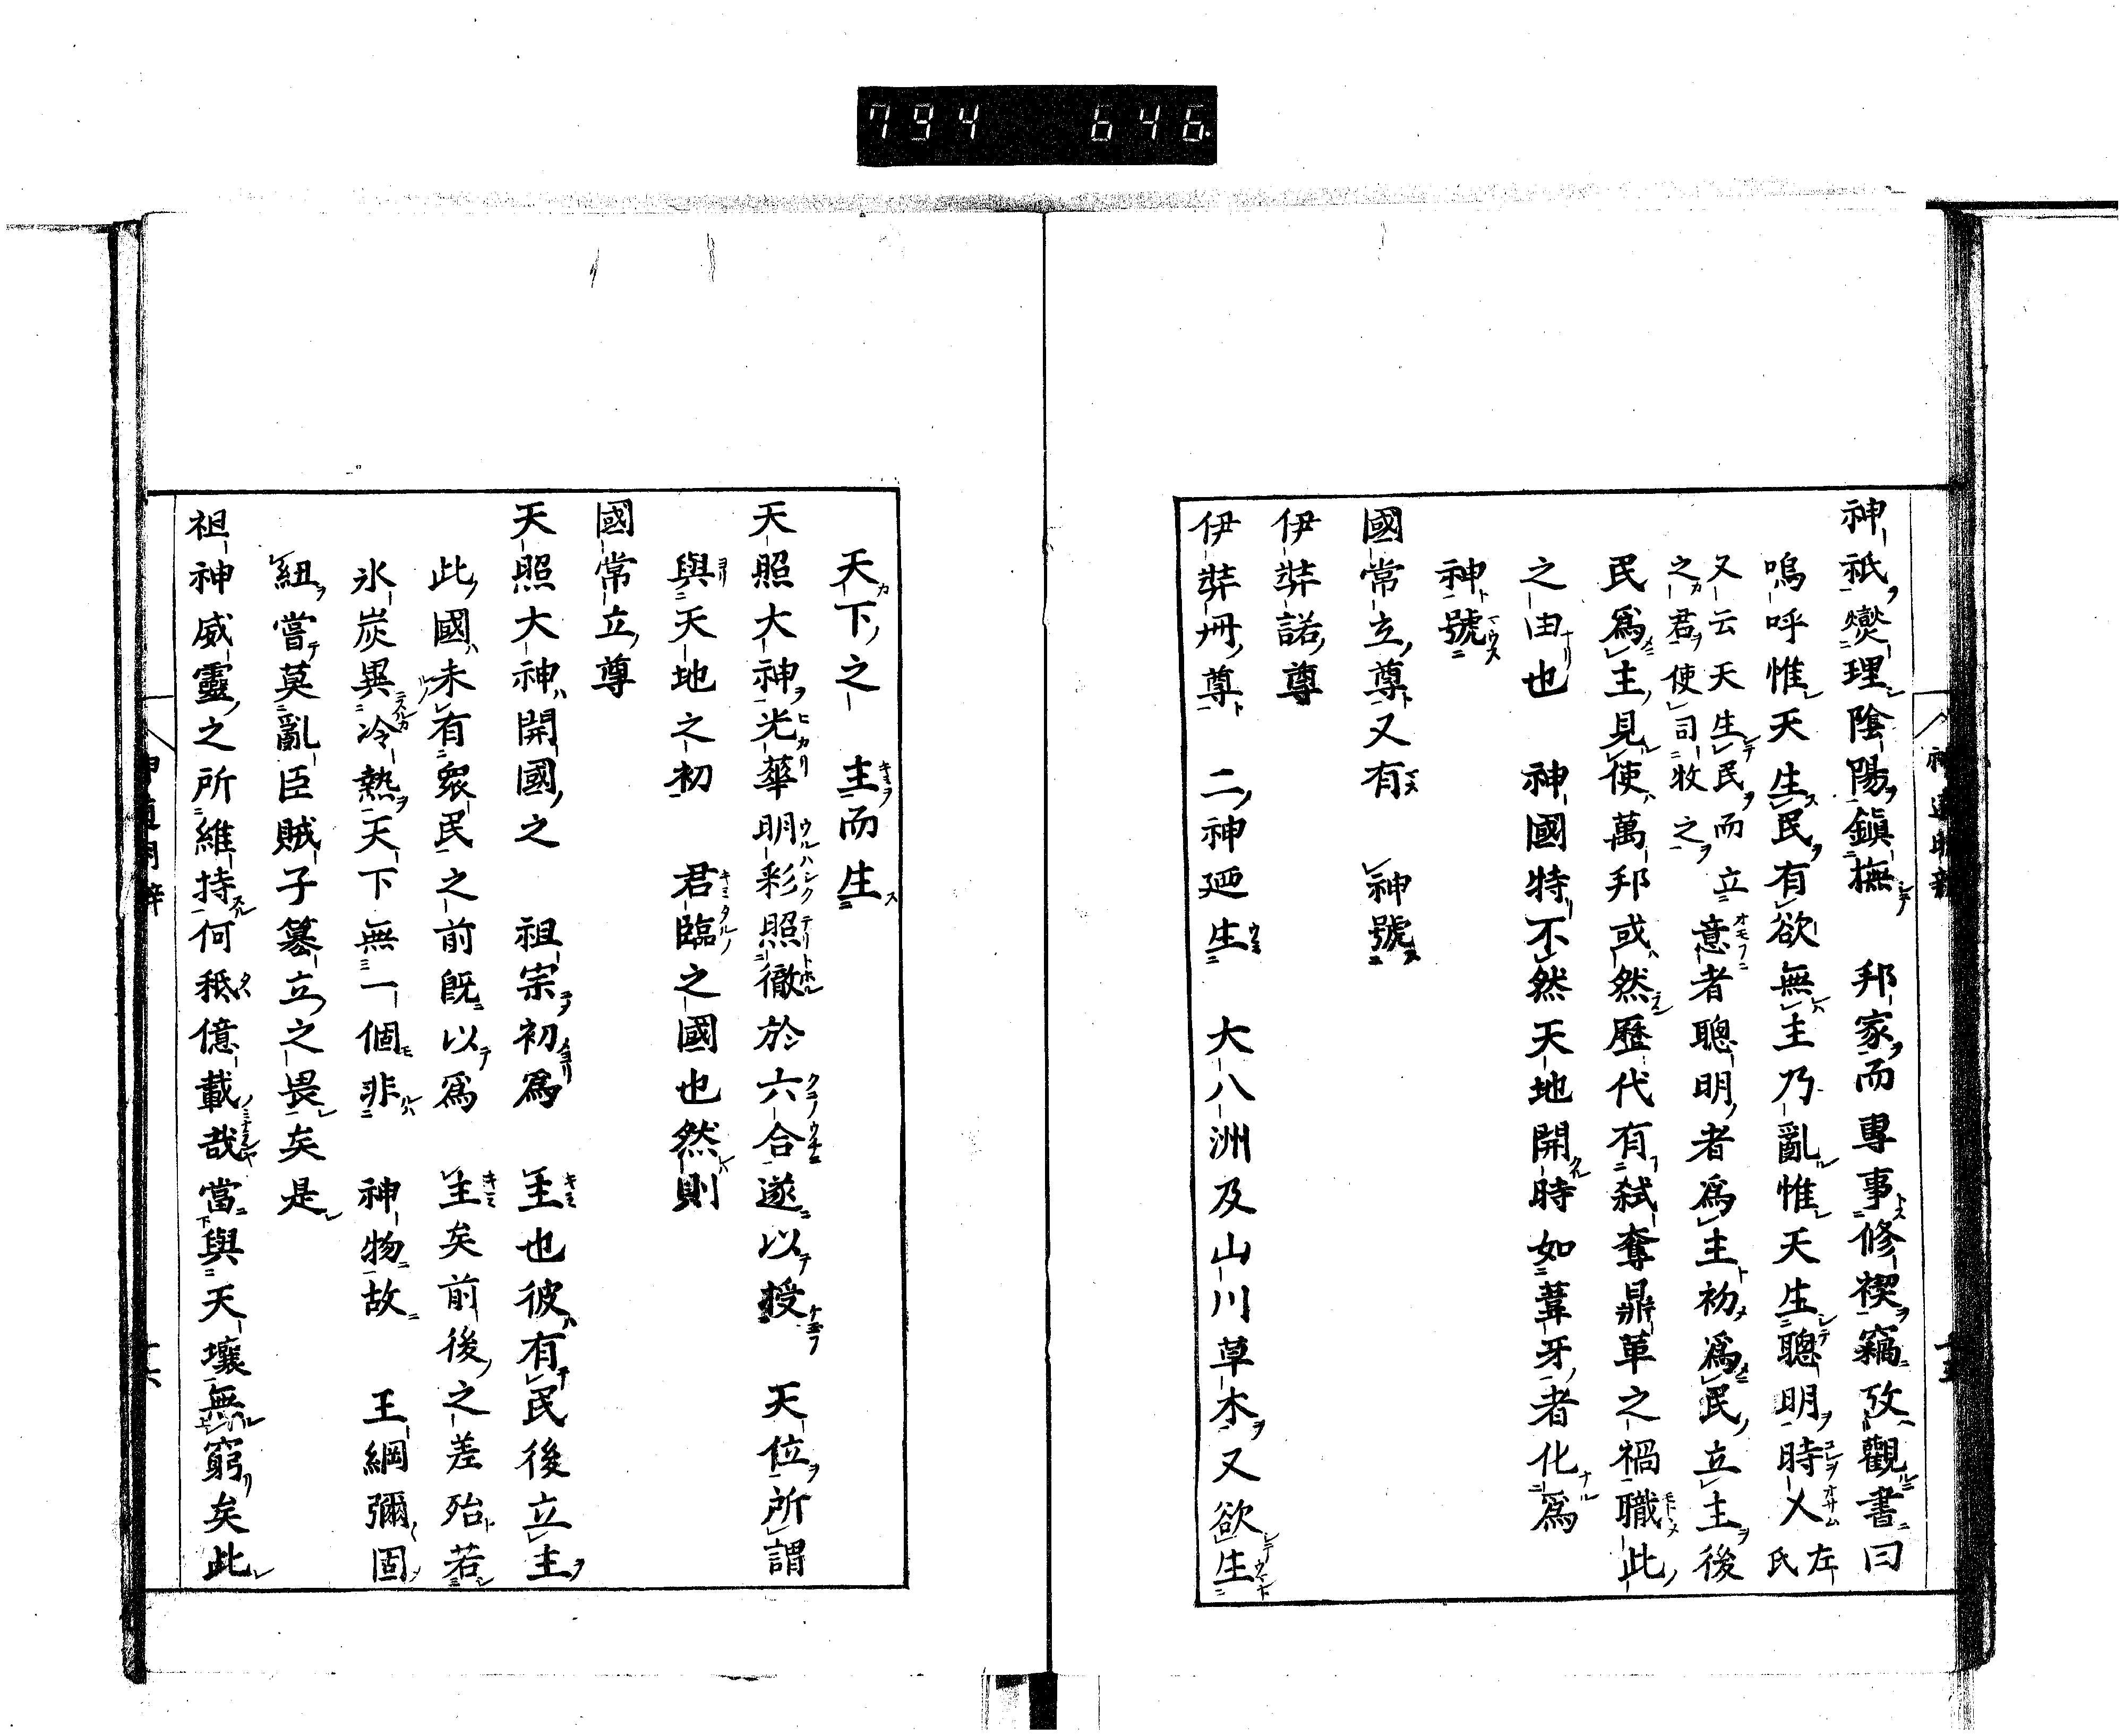 794 646
神祇燮理陰陽鎭撫　邦家而專事修禊竊攷觀書曰
嗚呼惟天生民有欲無主乃亂惟天生聰明時乂左氏
又云天生民而立
之君使司牧之
意者聰明者爲主初爲民立主後
民爲主見使萬邦或然歷代有弑奪鼎革之禍職此
之由也　神國特不然天地開時如葦牙者化爲
神號
國常立尊又有　神號
伊弉諾尊
伊弉冊尊　二神廼生　大八洲及山川草木又欲生
天下之　主而生
天照大神光華明彩照徹於六合遂以授　天位所謂
與天地之初　君臨之國也然則
國常立尊
天照大神開國之　祖宗初爲　主也彼有民後立主
此國未有衆民之前既以爲　主矣前後之差殆若
氷炭異冷熱天下無一個非　神物故　王綱彌固
紐嘗莫亂臣賊子簒立之畏矣是
祖神威靈之所維持何秪億載哉當與天壤無窮矣此